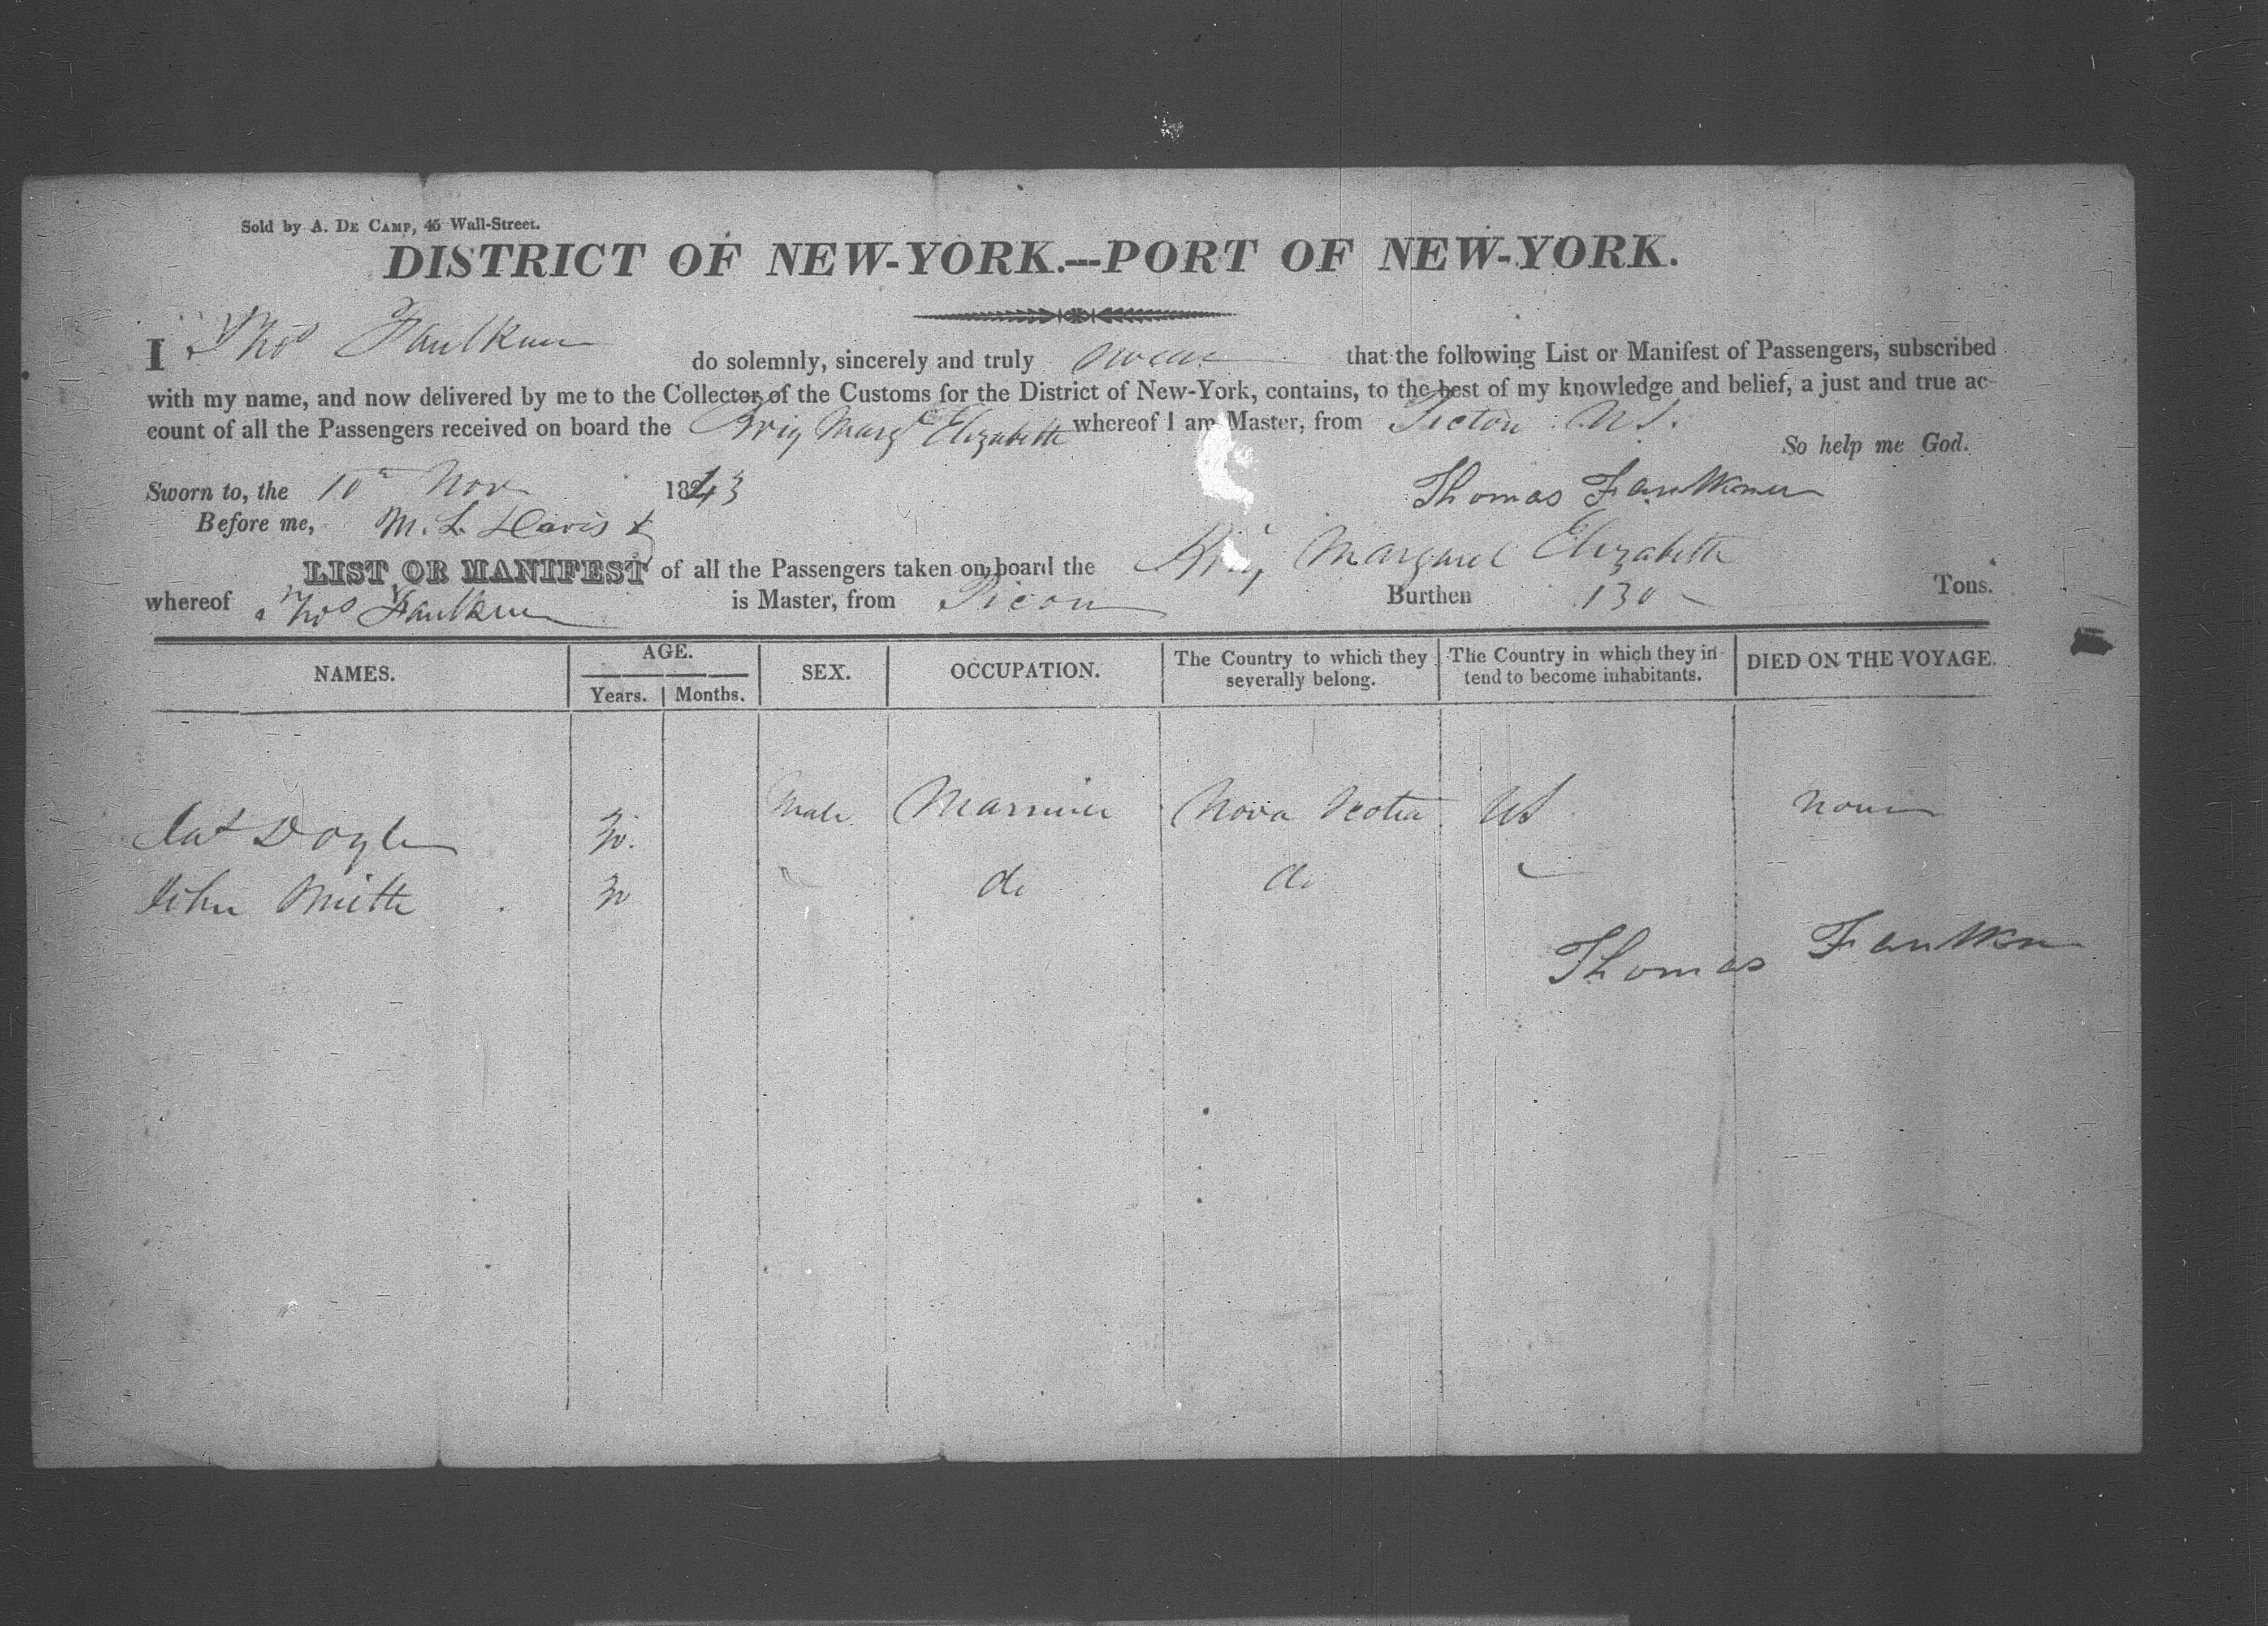 Sold by A. DE CAMP, 45 Wall-Street.
DISTRICT OF NEW-YORK.---PORT OF NEW-YORK.
I Thos Faulkner do solemnly, sincerely and truly swear that the following List or Manifest of Passengers, subscribed
with my name, and now delivered by me to the Collector of the Customs for the District of New-York, contains, to the best of my knowledge and belief, a just and true ac-
count of all the Passengers received on board the Brig Margt Elizabeth whereof I am Master, from Pictou N.S.
So help me God.
Sworn to, the 10th Nov 1843 Thomas Faulkner
Before me, M. L. Davis
LIST OR MANIFEST of all the Passengers taken on board the Brig Margaret Elizabeth
whereof Thos Faulkner is Master, from Picou Burthen 130 Tons.
NAMES. AGE. Years. Months. SEX. OCCUPATION. The Country to which they severally belong. The Country in which they intend to become inhabitants. DIED ON THE VOYAGE.
Doyle 30. Male Marriner Nova Scotia US none
John Smith 30 do do
Thomas Faulkner